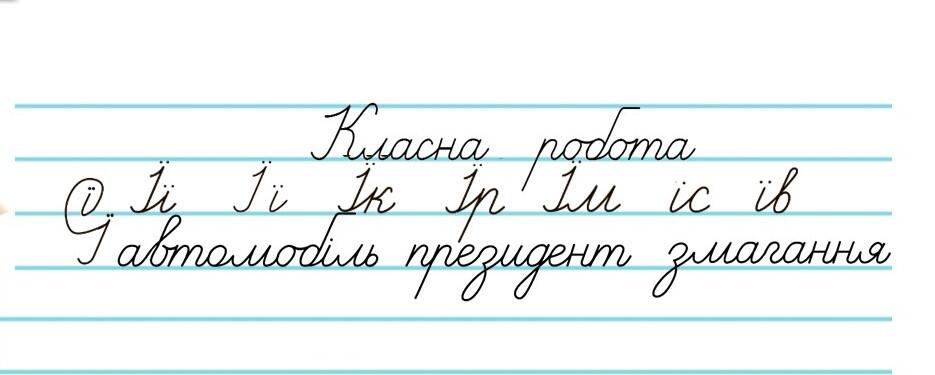 Класна робота
ї Її Її Їк Їр Їм їс їв
Ї автомобіль президент змагання